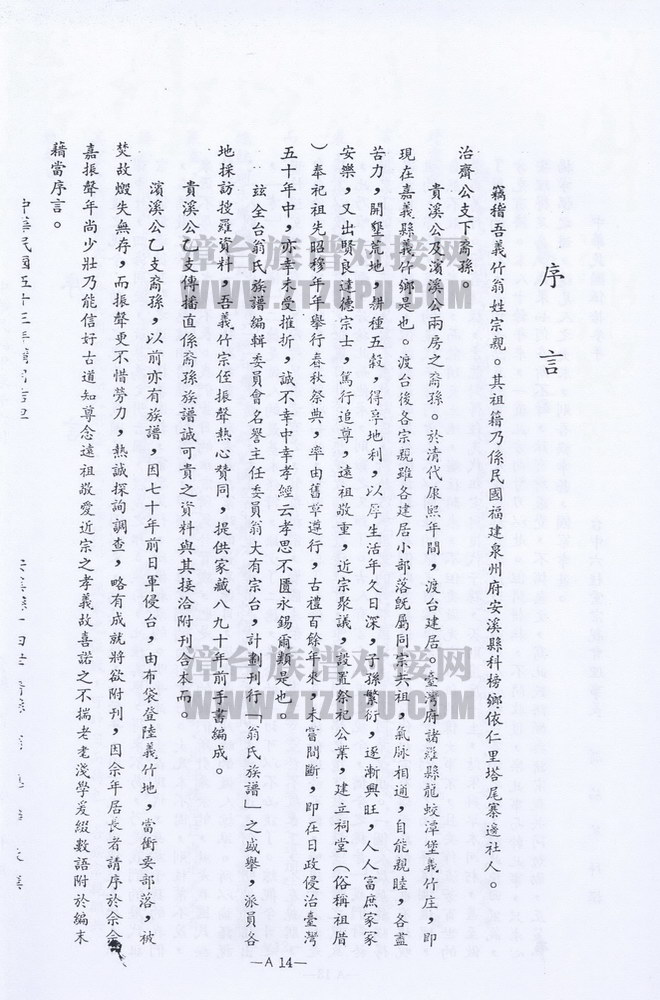 序言
竊稽吾義竹翁姓宗親。其祖籍乃係民國福建泉州府安溪縣科榜鄉依仁里塔尾寨邊社人。
治齋公支下裔孫。
貴溪公及濱溪公兩房之裔孫。於清代康熙年間，渡台建居。臺灣府諸羅縣龍蛟潭堡義竹庄，即
現在嘉義縣義竹鄉是也。渡台後各宗親雖各建居小部落旣屬同宗共祖，氣脉相通，自能親睦，各盡
苦力，開墾荒地，耕種五穀，得孚地利，以厚生活年久日深，子孫繁衍，逐漸興旺，人人富庶家家
安樂，又出賢良達德宗士，篤行追尊，遠祖敬重，近宗聚議，設置祭祀公業，建立祠堂（俗稱祖厝
）奉祀祖先昭穆年年舉行春秋祭典，率由舊章遵行，古禮百餘年來，未嘗間斷，即在日政侵治臺灣
五十年中，亦幸未受摧折，誠不幸中幸孝經云孝思不匱永錫爾類是也。
玆全台翁氏族譜編輯委員會名譽主任委員翁大有宗台，計劃刊行「翁氏族譜」之盛舉，派員各
地採訪搜羅資料，吾義竹宗侄振聲熱心贊同，提供家藏八九十年前手書編成。
貴溪公乙支傳播直係裔孫族譜誠可貴之資料與其接洽附刊合本而。
濱溪公乙支裔孫，以前亦有族譜，因七十年前日軍侵台，由布袋登陸義竹地，當衝要部落，被
焚故燬失無存，而振聲更不惜勞力，熱誠探詢調查，略有成就將欲附刊，因佘年居長者請序於佘佘
嘉振聲年尚少壯乃能信好古道知尊念遠祖敬愛近宗之孝義故喜諾之不揣老耄淺學爰綴數語附於編末
藉當序言。
中華民國五十三年
—A 14—
漳台族谱对接网
WWW.ZTZUPU.COM
漳台族谱对接网
WWW.ZTZUPU.COM